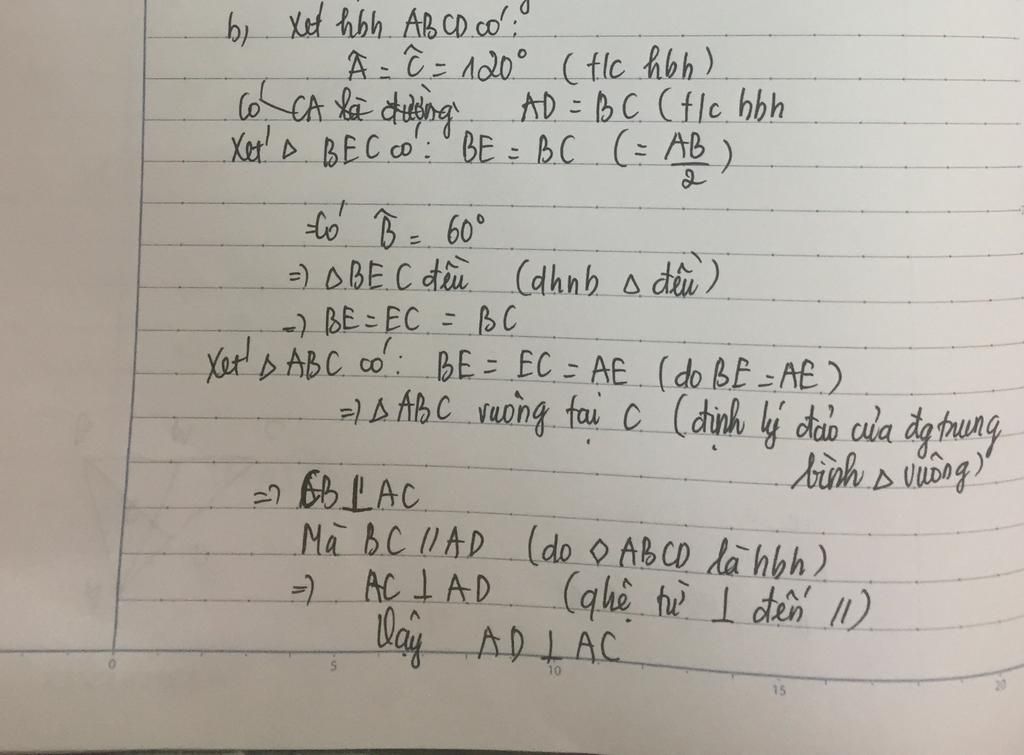 b, Xét hbh ABCD có:
Â = Ĉ = 120° (t/c hbh)
Có CA là đường AD = BC (t/c hbh
Xét Δ BEC có: BE = BC (= AB/2)
=Có B̂ = 60°
=> Δ BEC đều (dhnb Δ đều)
=> BE = EC = BC
Xét Δ ABC có: BE = EC = AE (do BE = AE)
=> Δ ABC vuông tại C (định lý đảo của đg trung
bình Δ vuông)
=> CB ⊥ AC
Mà BC // AD (do ◊ ABCD là hbh)
=> AC ⊥ AD (qhệ từ ⊥ đến //)
Vậy AD ⊥ AC
0 5 10 15 20